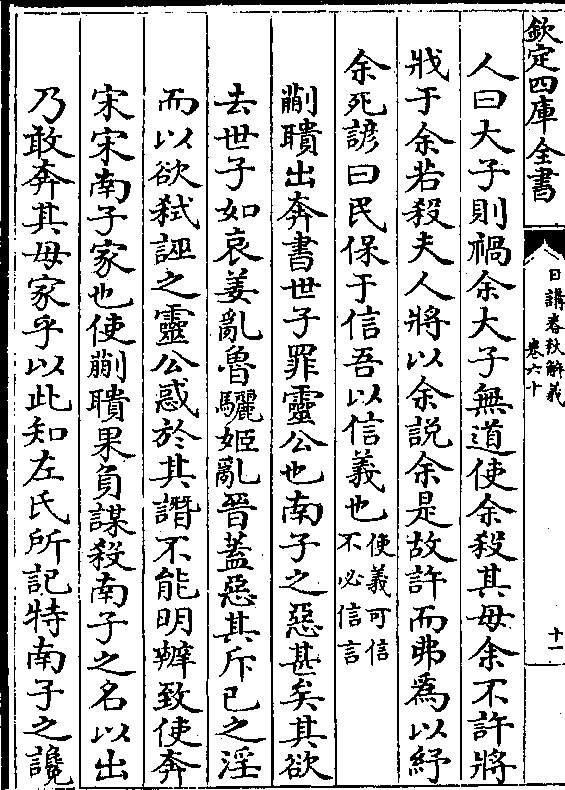 欽定四庫全書
日講春秋解義
卷六十
十一
人曰大子則禍余大子無道使余殺其母余不許將
戕于余若殺夫人將以余說余是故許而弗為以紓
余死諺曰民保于信吾以信義也使義可信
不必信言
蒯聵出奔書世子罪靈公也南子之惡甚矣其欲
去世子如哀姜亂魯驪姬亂晉蓋惡其斥已之淫
而以欲弒誣之靈公惑於其譖不能明辨致使奔
宋宋南子家也使蒯聵果負謀殺南子之名以出
乃敢奔其母家乎以此知左氏所記特南子之讒